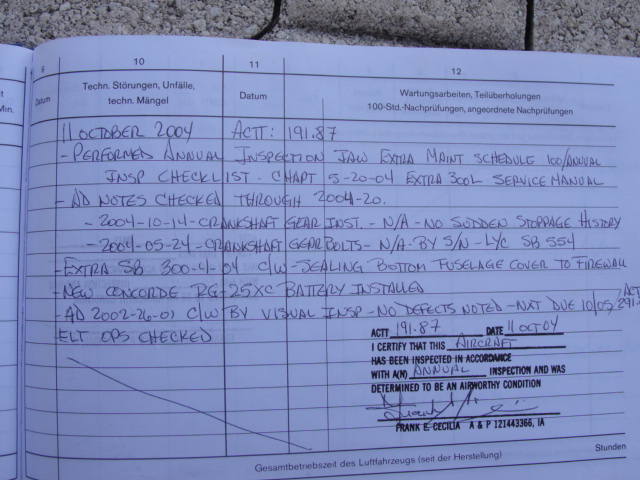 9 10 11 12
Datum Techn. Störungen, Unfälle, Datum Wartungsarbeiten, Teilüberholungen
techn. Mängel 100-Std.-Nachprüfungen, angeordnete Nachprüfungen
Min.
11 OCTOBER 2004 ACTT: 191.87
- PERFORMED ANNUAL INSPECTION IAW EXTRA MAINT SCHEDULE 100/ANNUAL
INSP CHECKLIST - CHAPT 5-20-04 EXTRA 300L SERVICE MANUAL
- AD NOTES CHECKED THROUGH 2004-20.
- 2004-10-14-CRANKSHAFT GEAR INST. - N/A - NO SUDDEN STOPPAGE HISTORY
- 2004-05-24-CRANKSHAFT GEAR BOLTS - N/A - BY S/N - LYC SB 554
- EXTRA SB 300-4-04 C/W - SEALING BOTTOM FUSELAGE COVER TO FIREWALL
- NEW CONCORDE RG-25XC BATTERY INSTALLED
- AD 2002-26-01 C/W BY VISUAL INSP - NO DEFECTS NOTED - NXT DUE 10/05, ACTT
ELT OPS CHECKED
ACTT 191.87 DATE 11 OCT 04
I CERTIFY THAT THIS AIRCRAFT
HAS BEEN INSPECTED IN ACCORDANCE
WITH A(N) ANNUAL INSPECTION AND WAS
DETERMINED TO BE AN AIRWORTHY CONDITION
FRANK E. CECILIA A & P 121443366, IA
Gesamtbetriebszeit des Luftfahrzeugs (seit der Herstellung) Stunden